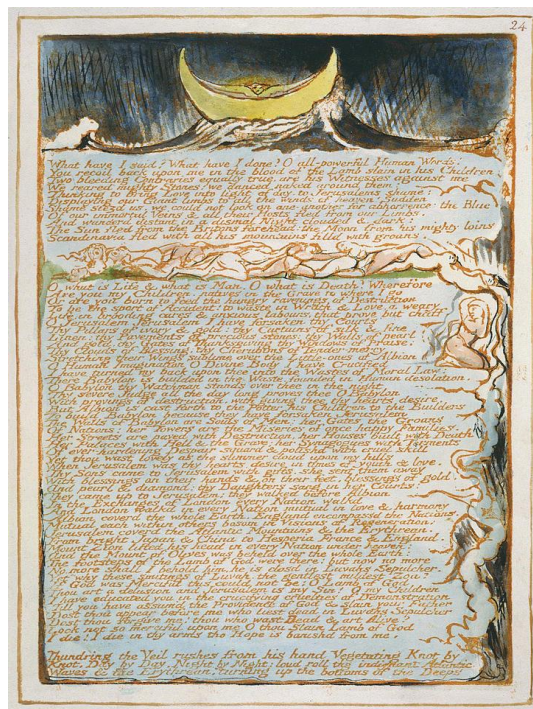 24
What have I said? What have I done? O all-powerful Human Words!
You recoil back upon me in the blood of the Lamb slain in his Children
Two bleeding Contraries equally true, are his Witnesses against me
We reared mighty Stones: we danced naked around them:
Thinking to bring Love into light of day, to Jerusalems shame:
Displaying our Giant limbs to all the winds of heaven! Sudden
Shame siezd us, we could not look on one-another for abhorrence: the Blue
Of our immortal Veins & all their Hosts fled from our Limbs,
And wanderd distant in a dismal Night clouded & dark:
The Sun fled from the Britons forehead: the Moon from his mighty loins:
Scandinavia fled with all his mountains filld with groans.
O what is Life & what is Man. O what is Death? Wherefore
Are you my Children, natives in the Grave to where I go
Or are you born to feed the hungry ravenings of Destruction
To be the sport of Accident! to waste in Wrath & Love, a weary
Life, in brooding cares & anxious labours, that prove but chaff.
O Jerusalem Jerusalem I have forsaken thy Courts
Thy Pillars of ivory & gold: thy Curtains of silk & fine
Linen: thy Pavements of precious stones: thy Walls of pearl
And gold, thy Gates of Thanksgiving thy Windows of Praise:
Thy Clouds of Blessing; thy Cherubims of Tender-mercy
Stretching their Wings sublime over the Little-ones of Albion
O Human Imagination O Divine Body I have Crucified
I have turned my back upon thee into the Wastes of Moral Law:
There Babylon is builded in the Waste, founded in Human desolation.
O Babylon thy Watchman stands over thee in the night
Thy severe Judge all the day long proves thee O Babylon
With provings of destruction, with giving thee thy hearts desire.
But Albion is cast forth to the Potter his Children to the Builders
To build Babylon because they have forsaken Jerusalem
The Walls of Babylon are Souls of Men: her Gates the Groans
Of Nations: her Towers are the Miseries of once happy Families.
Her Streets are paved with Destruction, her Houses built with Death
Her Palaces with Hell & the Grave; her Synagogues with Torments
Of ever-hardening Despair squard & polishd with cruel skill
Yet thou wast lovely as the summer cloud upon my hills
When Jerusalem was thy hearts desire in times of youth & love.
Thy Sons came to Jerusalem with gifts, she sent them away
With blessings on their hands & on their feet, blessings of gold,
And pearl & diamond: thy Daughters sang in her Courts:
They came up to Jerusalem; they walked before Albion
In the Exchanges of London every Nation walkd
And London walkd in every Nation mutual in love & harmony
Albion coverd the whole Earth, England encompassd the Nations,
Mutual each within others bosom in Visions of Regeneration;
Jerusalem coverd the Atlantic Mountains & the Erythrean,
From bright Japan & China to Hesperia France & England.
Mount Zion lifted his head in every Nation under heaven:
And the Mount of Olives was beheld over the whole Earth:
The footsteps of the Lamb of God were there: but now no more
No more shall I behold him, he is closd in Luvahs Sepulcher.
Yet why these smitings of Luvah, the gentlest mildest Zoa?
If God was Merciful this could not be: O Lamb of God
Thou art a delusion and Jerusalem is my Sin! O my Children
I have educated you in the crucifying cruelties of Demonstration
Till you have assum'd the Providence of God & slain your Father
Dost thou appear before me who liest dead in Luvahs Sepulcher
Dost thou forgive me! thou who wast Dead & art Alive?
Look not so merciful upon me O thou Slain Lamb of God
I die! I die in thy arms tho Hope is banishd from me.
Thundring the Veil rushes from his hand Vegetating Knot by
Knot, Day by Day, Night by Night; loud roll the indignant Atlantic
Waves & the Erythrean, turning up the bottoms of the Deeps